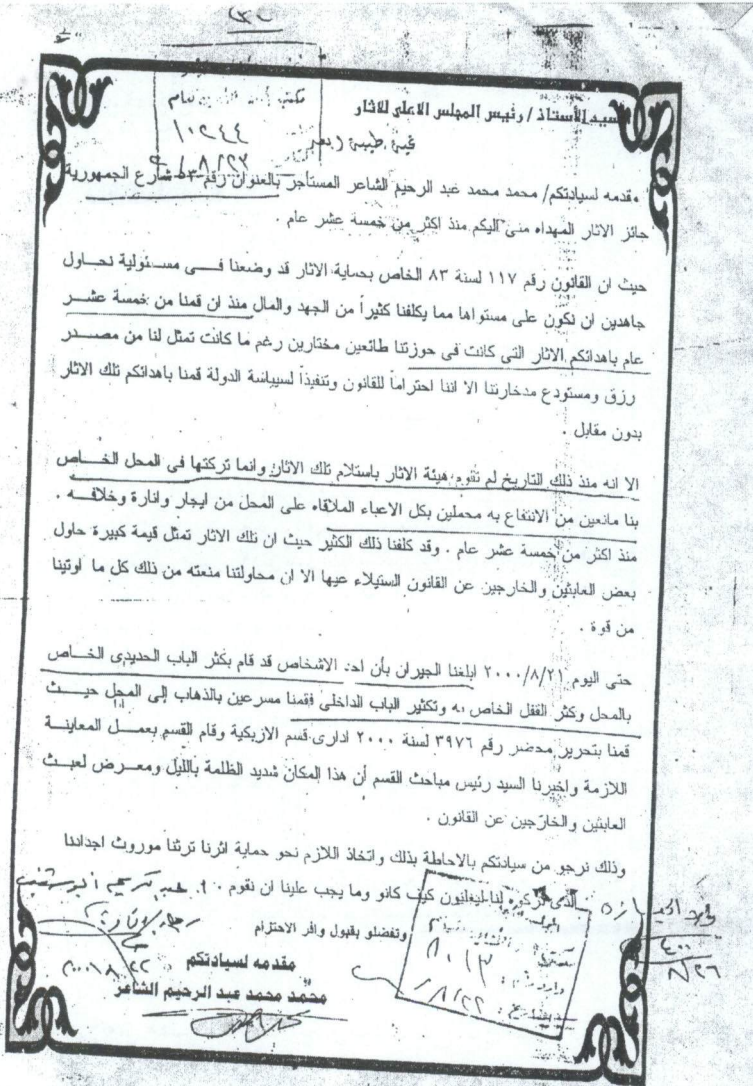 مكتب
١٠٢٤٤
٨/٢٣
السيد الأستاذ / رئيس المجلس الاعلى للاثار
تحية طيبة وبعد
مقدمه لسيادتكم/ محمد محمد عبد الرحيم الشاعر المستأجر بالعنوان رقم ٥٣ شارع الجمهورية
حائز الاثار المهداه منى اليكم منذ اكثر من خمسة عشر عام .
حيث ان القانون رقم ١١٧ لسنة ٨٣ الخاص بحماية الاثار قد وضعنا فــى مسئولية نحــاول
جاهدين ان نكون على مستواها مما يكلفنا كثيراً من الجهد والمال منذ ان قمنا من خمسة عشــر
عام باهدائكم الاثار التى كانت فى حوزتنا طائعين مختارين رغم ما كانت تمثل لنا من مصــدر
رزق ومستودع مدخارتنا الا اننا احتراماً للقانون وتنفيذاً لسيياسة الدولة قمنا باهدائكم تلك الاثار
بدون مقابل .
الا انه منذ ذلك التاريخ لم تقوم هيئة الاثار باستلام تلك الاثار وانما تركتها فى المحل الخــاص
بنا مانعين من الانتفاع به محملين بكل الاعباء الملاقاه على المحل من ايجار وانارة وخلافــه .
منذ اكثر من خمسة عشر عام . وقد كلفنا ذلك الكثير حيث ان تلك الاثار تمثل قيمة كبيرة حاول
بعض العابثين والخارجين عن القانون الستيلاء عيها الا ان محاولتنا منعته من ذلك كل ما اوتينا
من قوة .
حتى اليوم ٢٠٠٠/٨/٢١ ابلغنا الجيران بأن احد الاشخاص قد قام بكثر الباب الحديدى الخــاص
بالمحل وكثر القفل الخاص به وتكثير الباب الداخلى فقمنا مسرعين بالذهاب إلى المحل حيــث
قمنا بتحرير محضر رقم ٣٩٧٦ لسنة ٢٠٠٠ ادارى قسم الازبكية وقام القسم بعمــل المعاينة
اللازمة واخبرنا السيد رئيس مباحث القسم أن هذا المكان شديد الظلمة بالليل ومعــرض لعبــث
العابثين والخارجين عن القانون .
وذلك نرجو من سيادتكم بالاحاطة بذلك واتخاذ اللازم نحو حماية اثرنا ترثنا موروث اجدادنا
الذى تركوه لنا ليعلنون كيف كانو وما يجب علينا ان نقوم
وتفضلو بقبول وافر الاحترام
مقدمه لسيادتكم
محمد محمد عبد الرحيم الشاعر
٨٠١٣
٨/٢٢
٤٠٠
٨/٢٦